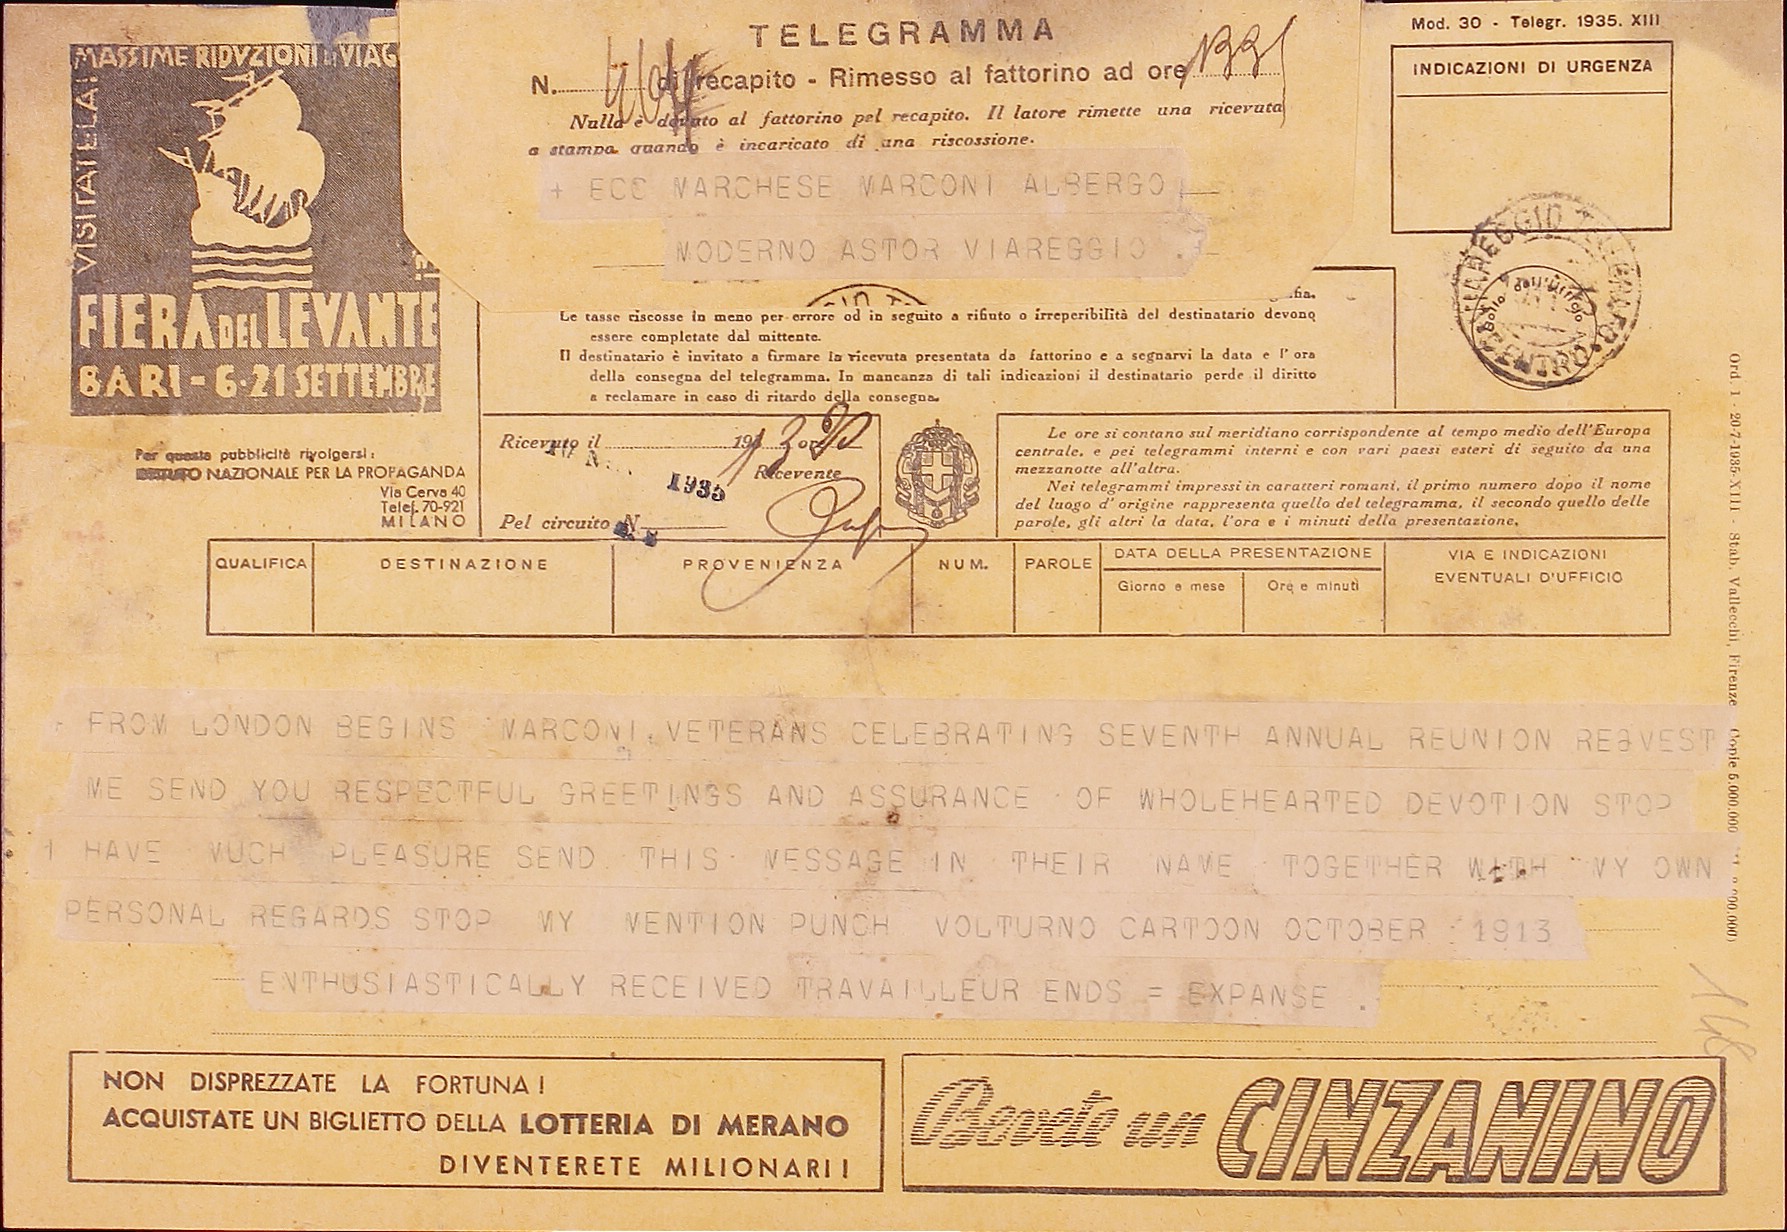 MASSIME RIDVZIONI DI VIAG
VISITATELA!
FIERA DEL LEVANTE
BARI - 6-21 SETTEMBRE
Per questa pubblicità rivolgersi:
ISTITUTO NAZIONALE PER LA PROPAGANDA
Via Cerva 40
Telef. 70-921
MILANO
TELEGRAMMA
N. di recapito - Rimesso al fattorino ad ore
Nulla è dovuto al fattorino pel recapito. Il latore rimette una ricevuta
a stampa quando è incaricato di una riscossione.
+ ECC MARCHESE MARCONI ALBERGO
MODERNO ASTOR VIAREGGIO .
Mod. 30 - Telegr. 1935. XIII
INDICAZIONI DI URGENZA
VIAREGGIO TELEGRAFO
CENTRO
Bollo dell'Ufficio
fia.
Le tasse riscosse in meno per errore od in seguito a rifiuto o irreperibilità del destinatario devono
essere completate dal mittente.
Il destinatario è invitato a firmare la ricevuta presentata da fattorino e a segnarvi la data e l'ora
della consegna del telegramma. In mancanza di tali indicazioni il destinatario perde il diritto
a reclamare in caso di ritardo della consegna.
Ricevuto il 193 ore
1935
Ricevente
Pel circuito N.
Le ore si contano sul meridiano corrispondente al tempo medio dell'Europa
centrale, e pei telegrammi interni e con vari paesi esteri di seguito da una
mezzanotte all'altra.
Nei telegrammi impressi in caratteri romani, il primo numero dopo il nome
del luogo d'origine rappresenta quello del telegramma, il secondo quello delle
parole, gli altri la data, l'ora e i minuti della presentazione.
QUALIFICA DESTINAZIONE PROVENIENZA NUM. PAROLE DATA DELLA PRESENTAZIONE VIA E INDICAZIONI
Giorno e mese Ore e minuti EVENTUALI D'UFFICIO
+ FROM LONDON BEGINS MARCONI VETERANS CELEBRATING SEVENTH ANNUAL REUNION REQVEST
ME SEND YOU RESPECTFUL GREETINGS AND ASSURANCE OF WHOLEHEARTED DEVOTION STOP
I HAVE MUCH PLEASURE SEND THIS MESSAGE IN THEIR NAME TOGETHER WITH MY OWN
PERSONAL REGARDS STOP MY MENTION PUNCH VOLTURNO CARTOON OCTOBER 1913
ENTHUSIASTICALLY RECEIVED TRAVAILLEUR ENDS = EXPANSE .
148
Ord. 1 - 20-7-1935-XIII - Stab. Vallecchi, Firenze Copie 6.000.000
NON DISPREZZATE LA FORTUNA!
ACQUISTATE UN BIGLIETTO DELLA LOTTERIA DI MERANO
DIVENTERETE MILIONARI!
Bevete un CINZANINO